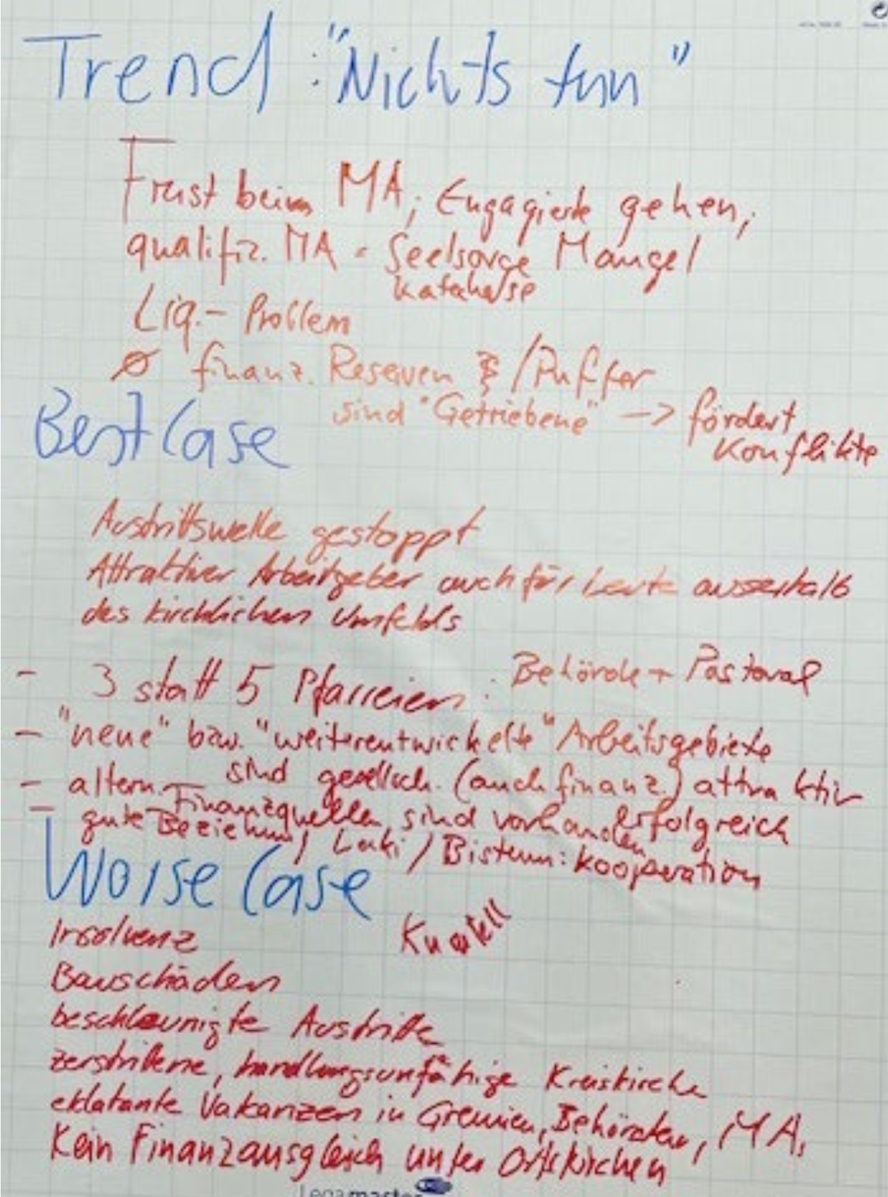 Trend: "Nichts tun"
Frust beim MA; Engagierte gehen;
qualifiz. MA - Seelsorge Mangel
Katechese
Liq.- Problem
∅ finanz. Reserven /Puffer
sind "Getriebene" -> fördert
Konflikte
Best Case
Austrittswelle gestoppt
Attraktiver Arbeitgeber auch für Leute ausserhalb
des kirchlichen Umfelds
- 3 statt 5 Pfarreien: Behörde + Pastoral
- "neue" bzw. "weiterentwickelte" Arbeitsgebiete
sind gesellsch. (auch finanz.) attraktiv
- altern. Finanzquellen sind vorhanden
- gute Beziehung / Laki / Bistum: Kooperation
erfolgreich
Worse Case
Insolvenz
Bauschäden
beschleunigte Austritte
zerstrittene, handlungsunfähige Kreiskirche
eklatante Vakanzen in Gremien, Behörden, MA,
Kein Finanzausgleich unter Ortskirchen
Legamaster